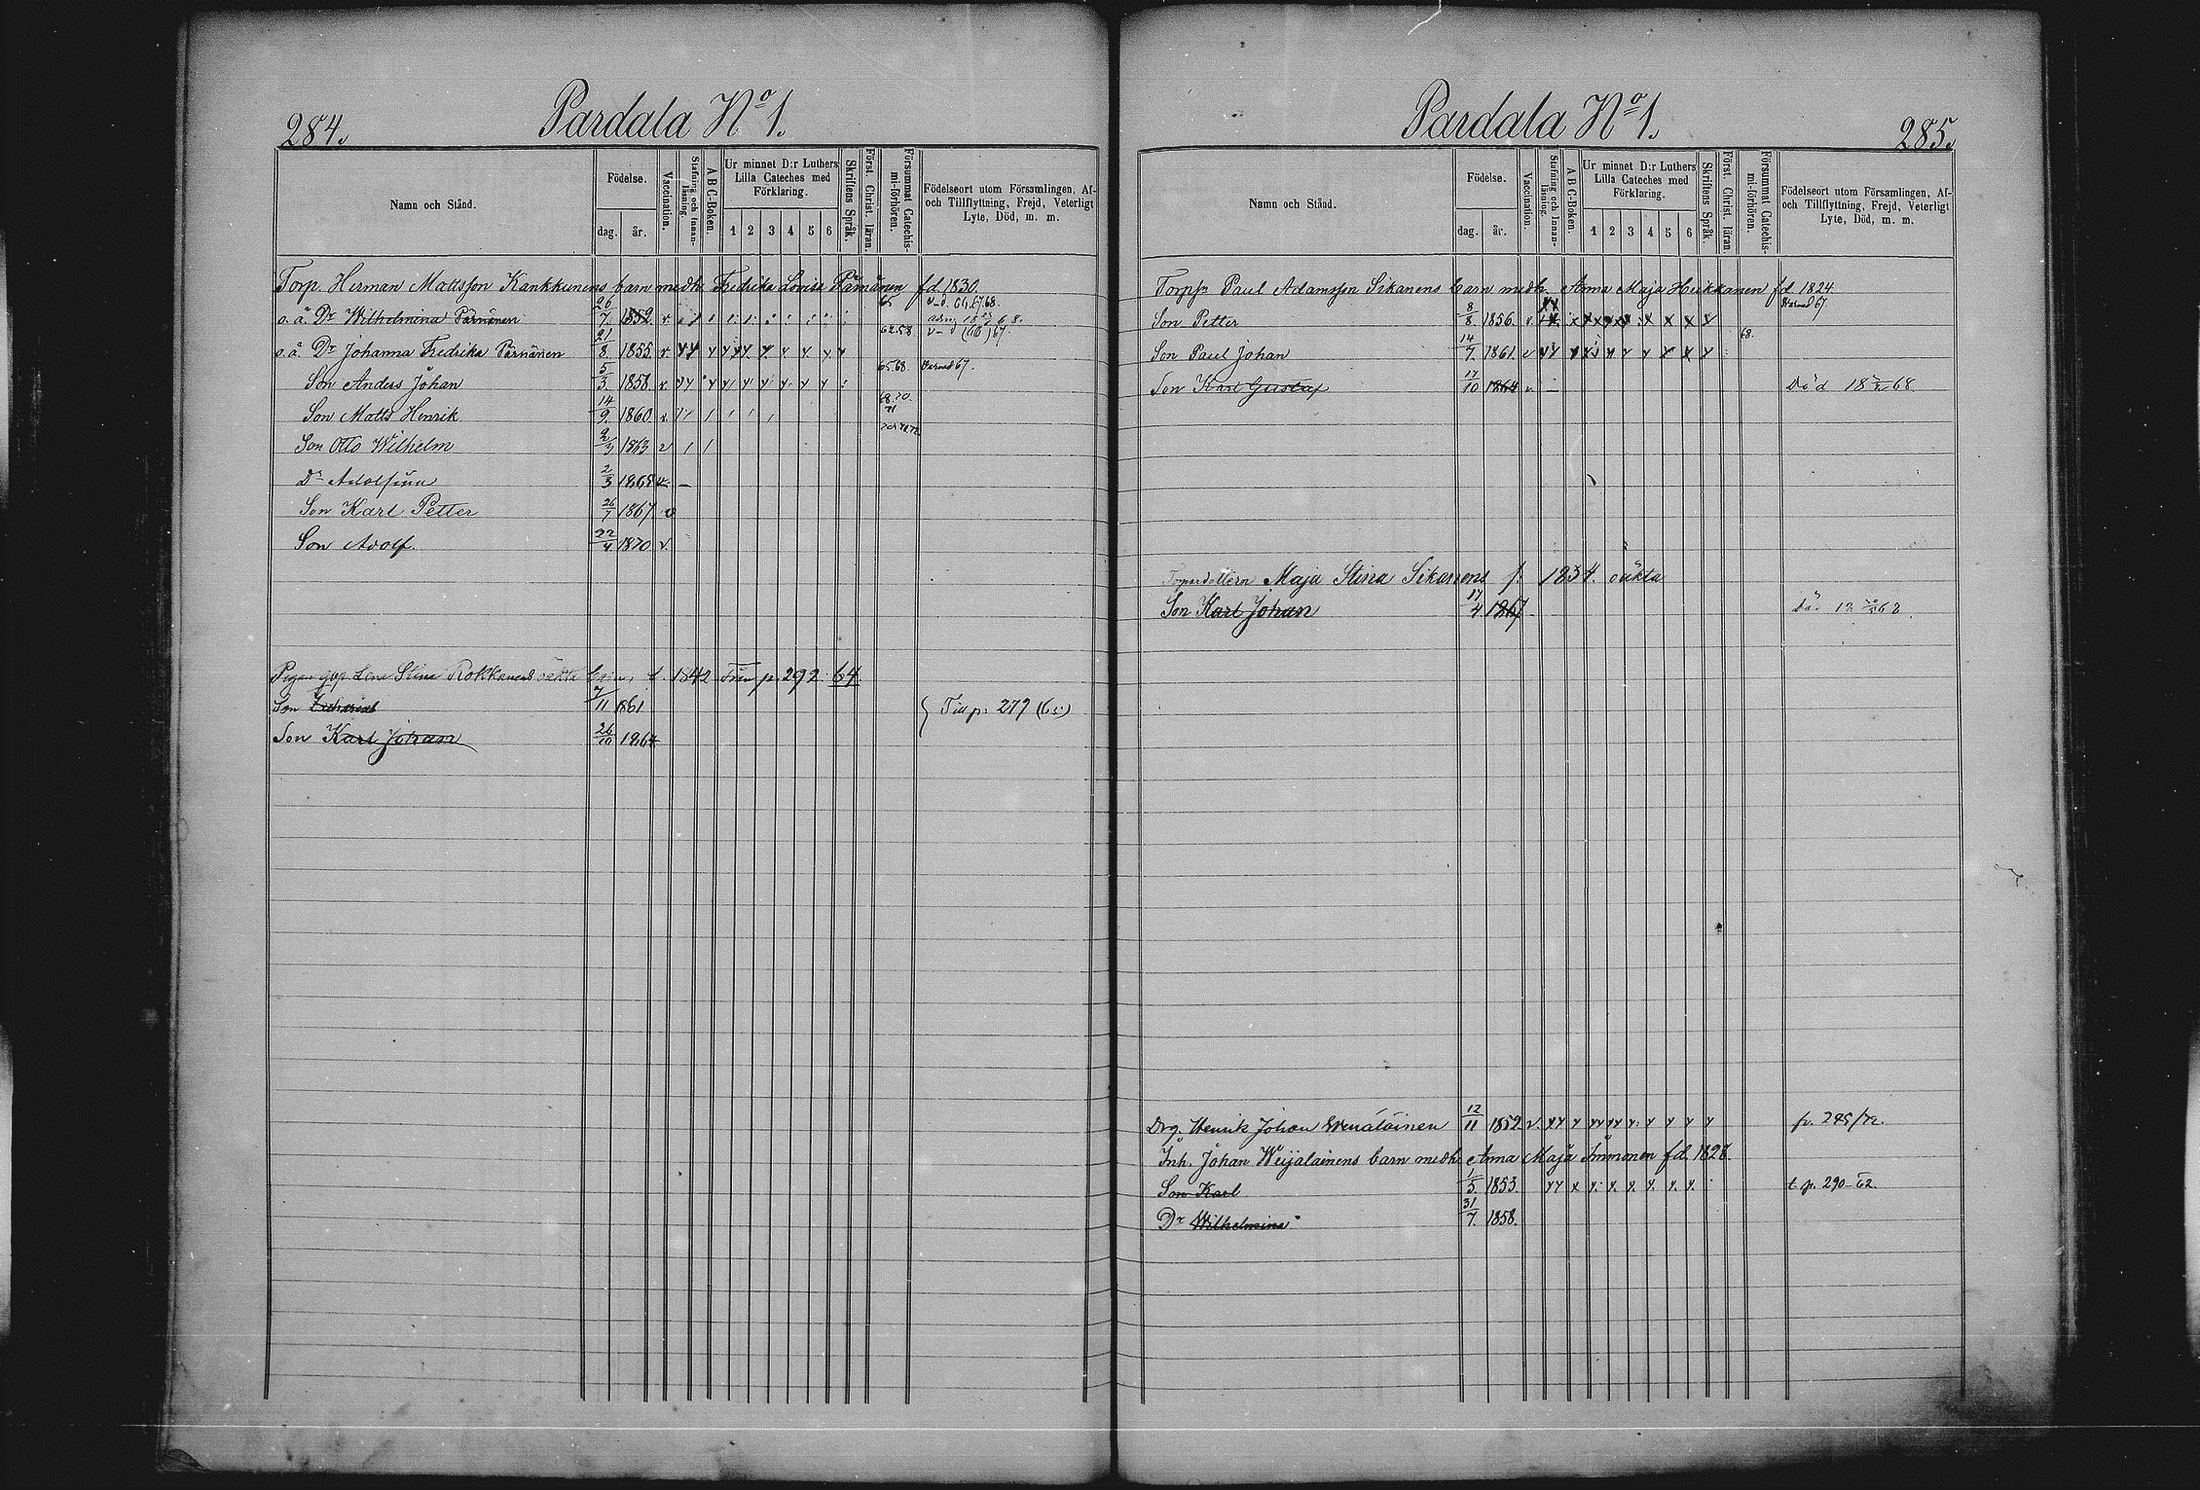 284.
Pardala No 1.
Namn och Stånd.
Födelse.
dag. år.
Vaccination.
Stafning och Innanläsning.
A B C-Boken.
Ur minnet D:r Luthers Lilla Cateches med Förklaring.
1 2 3 4 5 6
Skriftens Språk.
Först. Christ. läran.
Försummat Catechismi-förhören.
Födelseort utom Församlingen, Af- och Tillflyttning, Frejd, Veterligt Lyte, Död, m. m.
Torp. Herman Mattsson Kankkunens barn medh. Fredrika Lovisa Pärnänen fd. 1830.
o.ä. Dr Wilhelmina Pärnänen 26/7. 1852. v.
65
o.ä. Dr Johanna Fredrika Pärnänen 21/8. 1855. v.
62.58
Son Anders Johan 5/3. 1858. v. 65.68.
Son Matts Henrik 14/9. 1860 v. 68.70. 71
Son Otto Wilhelm 1863 v
Dr 2/3 1865 v.
Son Karl Petter 26/7 1867 v
Son Adolf. 22/4 1870 v.
Pigan Lena Stina Rokkanens 1842 Från p. 292. 64
Son 11 1861 Till p. 279
Son Karl Johan 26/10 1864
285.
Pardala No 1.
Namn och Stånd.
Födelse.
dag. år.
Vaccination.
Stafning och Innanläsning.
A B C-Boken.
Ur minnet D:r Luthers Lilla Cateches med Förklaring.
1 2 3 4 5 6
Skriftens Språk.
Först. Christ. läran.
Försummat Catechismi-förhören.
Födelseort utom Församlingen, Af- och Tillflyttning, Frejd, Veterligt Lyte, Död, m. m.
Paul Adamsson Sikanens barn medh. Anna Maja Heikkanen fd. 1824.
Son Petter 8/8. 1856. v.
Son Paul Johan 14/7. 1861. v 68.
Son Karl Gustaf 17/10 1864 v Död
Maja Stina Sikanens f. 1834. oäkta
Son Karl Johan 17/4 1867
Drg. Henrik Johan 12/11 1852 v.
Inh. Johan Weijalainens barn medh. Anna Maja Immonen fd. 1828
Son Karl 1/5. 1853. t. p. 290-62.
Dr Wilhelmina 31/7. 1858.